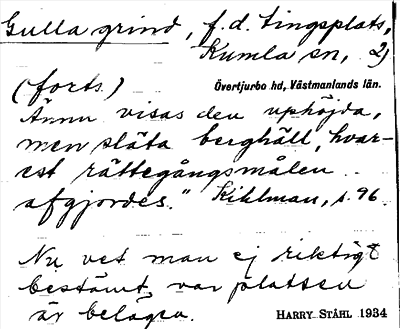 Gulla grind, f.d. tingsplats,
Kumla sn, 2)
(forts.) Övertjurbo hd, Västmanlands län.
Ännu visas den uphöjda,
men släta berghäll, hvar-
est rättegångsmålen
afgjordes." Kihlman, s. 96
Nu vet man ej riktigt
bestämt var platsen
är belägen.
HARRY STÅHL 1934